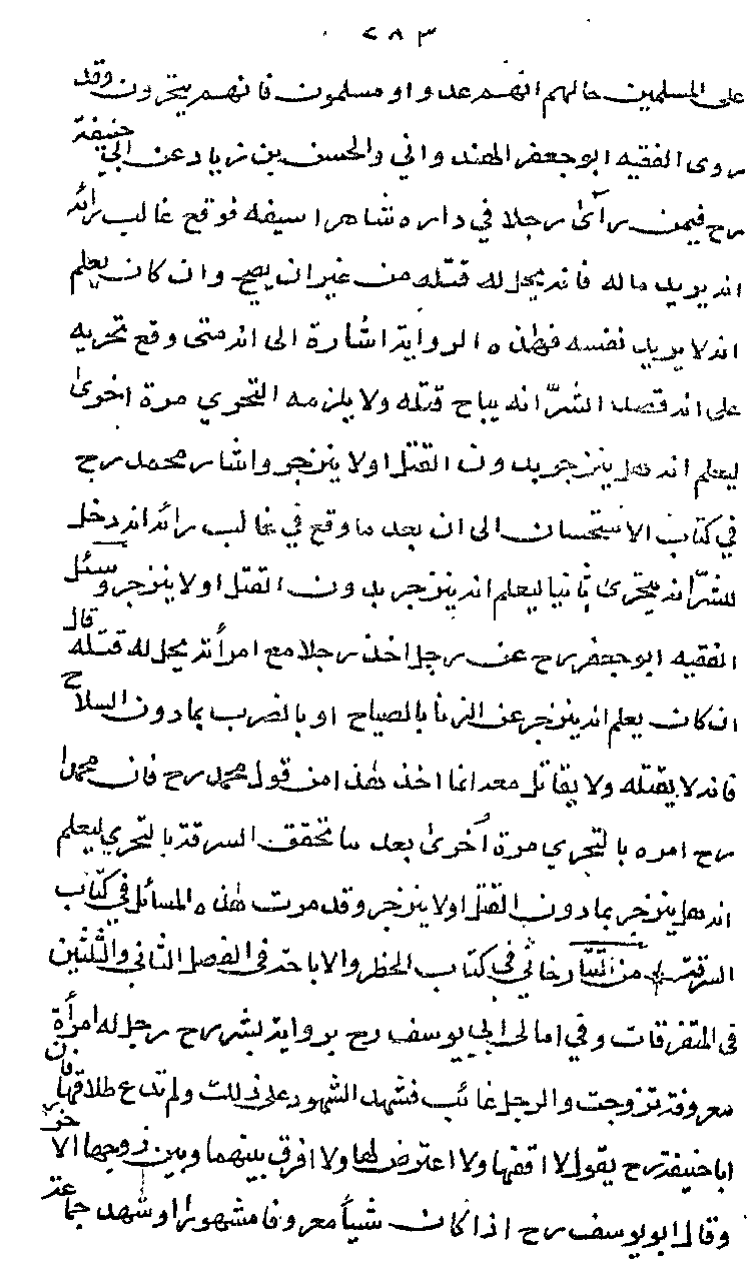 ٢٨٣
على المسلمين حالهم انهم عدو او مسلمون فانهم يتحرون وقد
روى الفقيه ابو جعفر الهندوانى والحسن بن زياد عن ابى حنيفة
رح فيمن رآى رجلا فى داره شاهرا سيفه فوقع غالب رائه
انه يريد ماله فانه يحل له قتله من غير ان يصح وان كان يعلم
انه لا يريد نفسه فهذه الرواية اشارة الى انه متى وقع تحريه
على انه قصد الشرّ انه يباح قتله ولا يلزمه التحرى مرة اخرى
ليعلم انه هل ينزجر بدون القتل او لا ينزجر واشار محمد رح
فى كتاب الاستحسان الى ان بعد ما وقع فى غالب رائه انه دخل
للشرّ انه يتحرى ثانيا ليعلم انه ينزجر بدون القتل او لا ينزجر وسئل
الفقيه ابو جعفر رح عن رجل اخذ رجلا مع امرأته يحل له قتله قال
ان كان يعلم انه ينزجر عن الزنا بالصياح او بالضرب بما دون السلاح
فانه لا يقتله ولا يقاتل معه انما اخذ هذا من قول محمد رح فان محمدا
رح امره بالتحرى مرة أخرى بعد ما تحقق السرقة بالتحرى ليعلم
انه هل ينزجر بما دون القتل او لا ينزجر وقد مرت هذه المسائل فى كتاب
السرقة من التتارخانى فى كتاب الحظر والاباحة فى الفصل الثانى والثلثين
فى المتفرقات وفى امالى ابى يوسف رح برواية بشر رح رجل له امرأة
معروفة تزوجت والرجل غائب فشهد الشهود على ذلك ولم تدع طلاقها فان
ابا حنيفة رح يقول لا اقفها ولا اعترض لها ولا افرق بينها وبين زوجها الاخر
وقال ابو يوسف رح اذا كان شيأ معروفا مشهورا او شهد جماعة